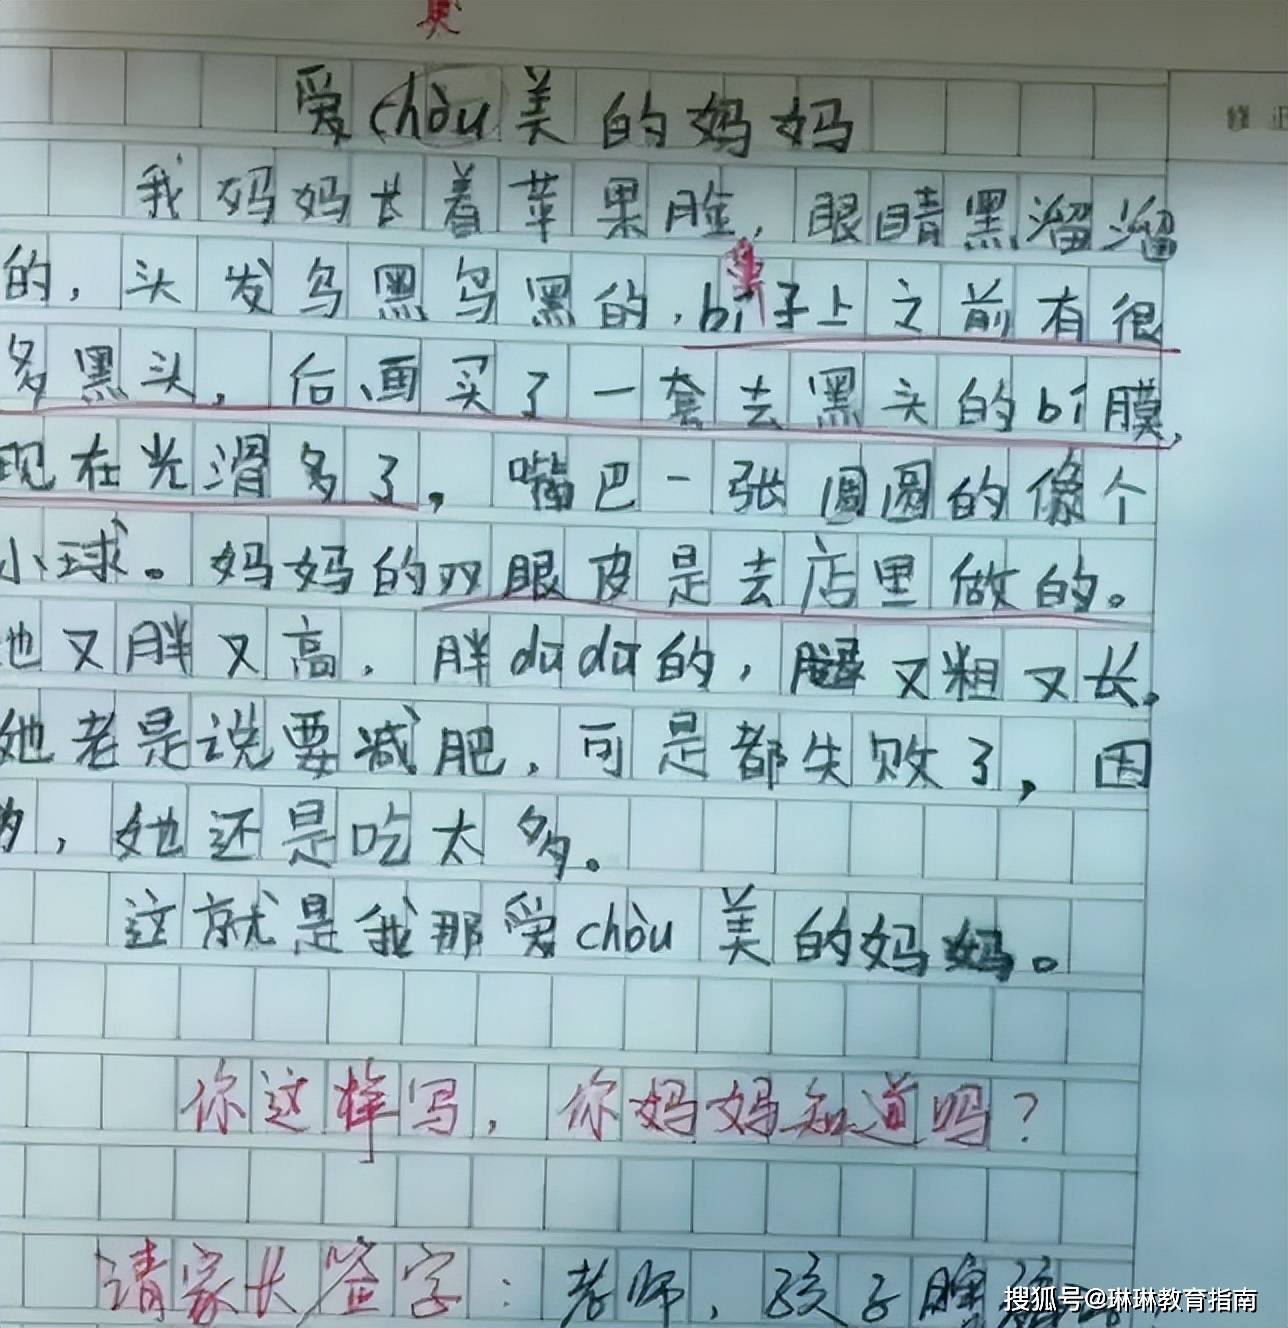 爱chòu美的妈妈
我妈妈长着苹果脸,眼睛黑溜溜
的,头发乌黑乌黑的,bí子上之前有很
多黑头,后面买了一套去黑头的bí膜,
现在光滑多了,嘴巴一张圆圆的像个
小球。妈妈的双眼皮是去店里做的。
她又胖又高,胖dūdū的,腿又粗又长。
她老是说要减肥,可是都失败了,因
为,她还是吃太多。
这就是我那爱chòu美的妈妈。
你这样写,你妈妈知道吗?
请家长签字:老师,孩子
搜狐号@琳琳教育指南